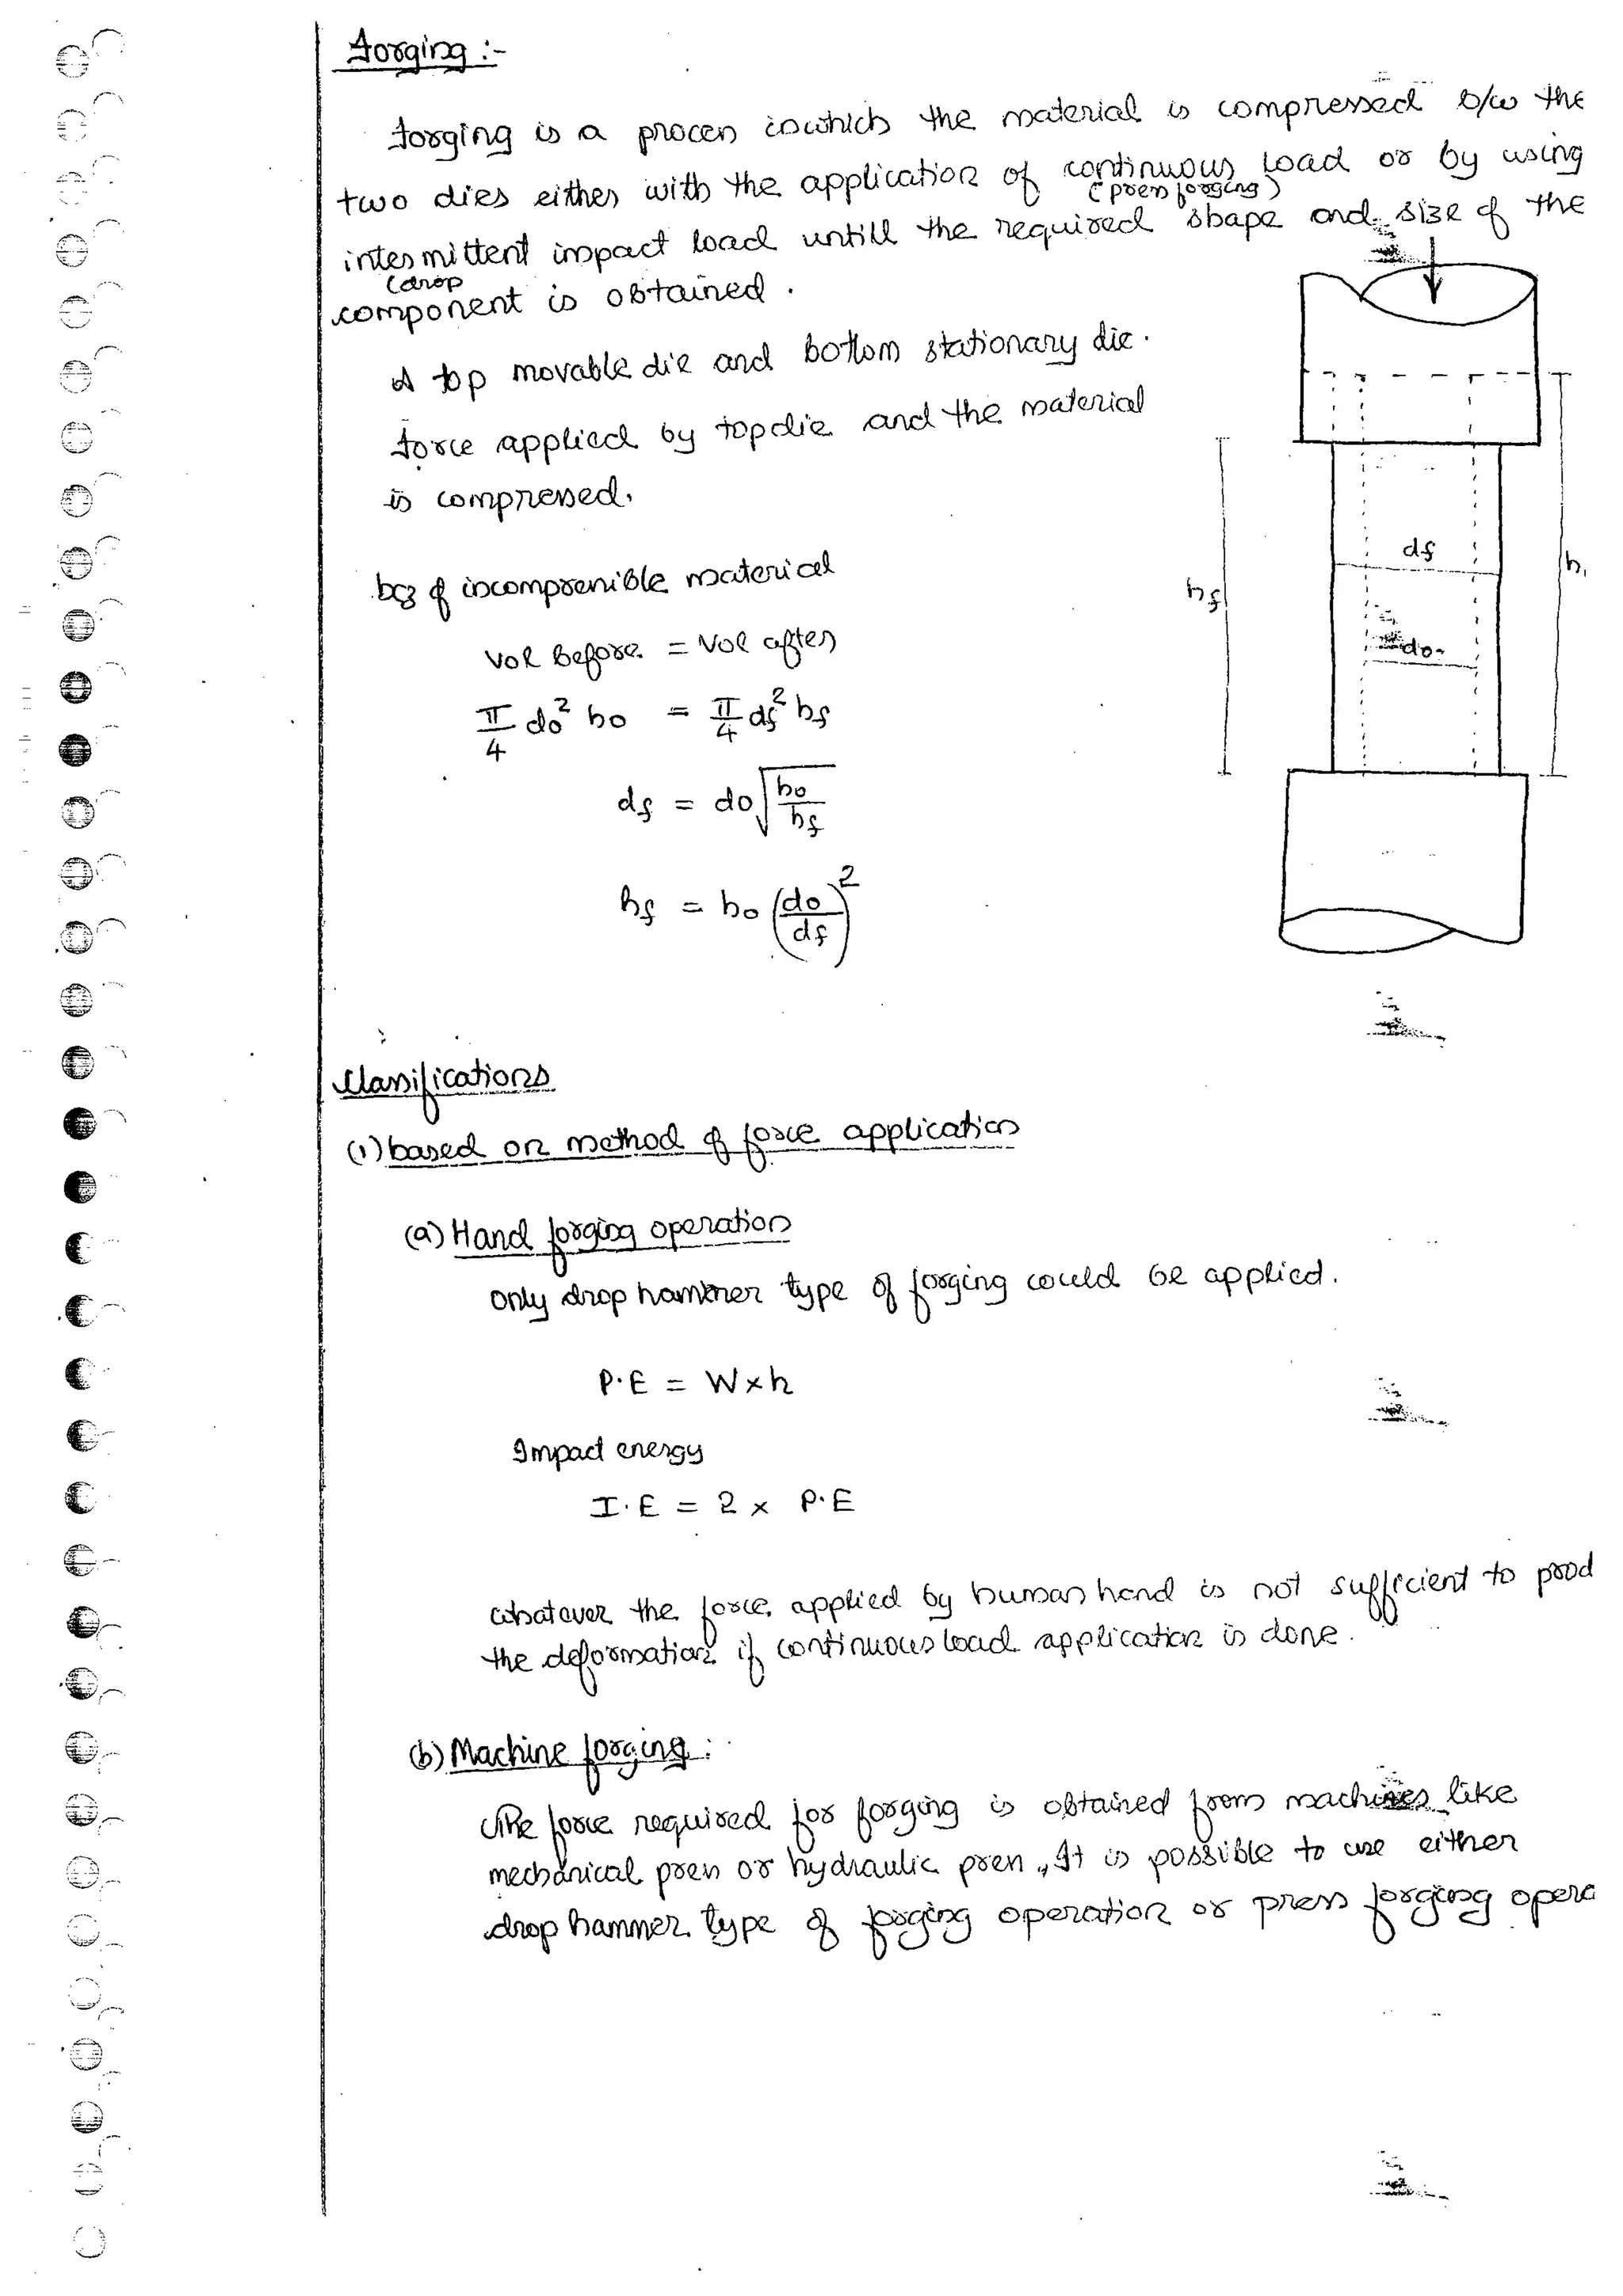 Forging :-
forging is a process in which the material is compressed b/w the
two dies either with the application of continuous load or by using
(press forging)
intermittent impact load untill the required shape and size of the
(drop
component is obtained.
A top movable die and bottom stationary die.
force applied by top die and the material
is compressed.
bcz of incompressible material
Vol Before = Vol after
π/4 do² ho = π/4 df² hf
df = do √(ho/hf)
hf = ho (do/df)²
df
do
hf
h
Classifications
(1) based on method of force application
(a) Hand forging operation
only drop hammer type of forging could be applied.
P.E = W×h
Impact energy
I.E = 2 × P.E
Whatever the force applied by human hand is not sufficient to prod
the deformation if continuous load application is done.
(b) Machine forging :
The force required for forging is obtained from machines like
mechanical press or hydraulic press, It is possible to use either
drop hammer type of forging operation or press forging opera